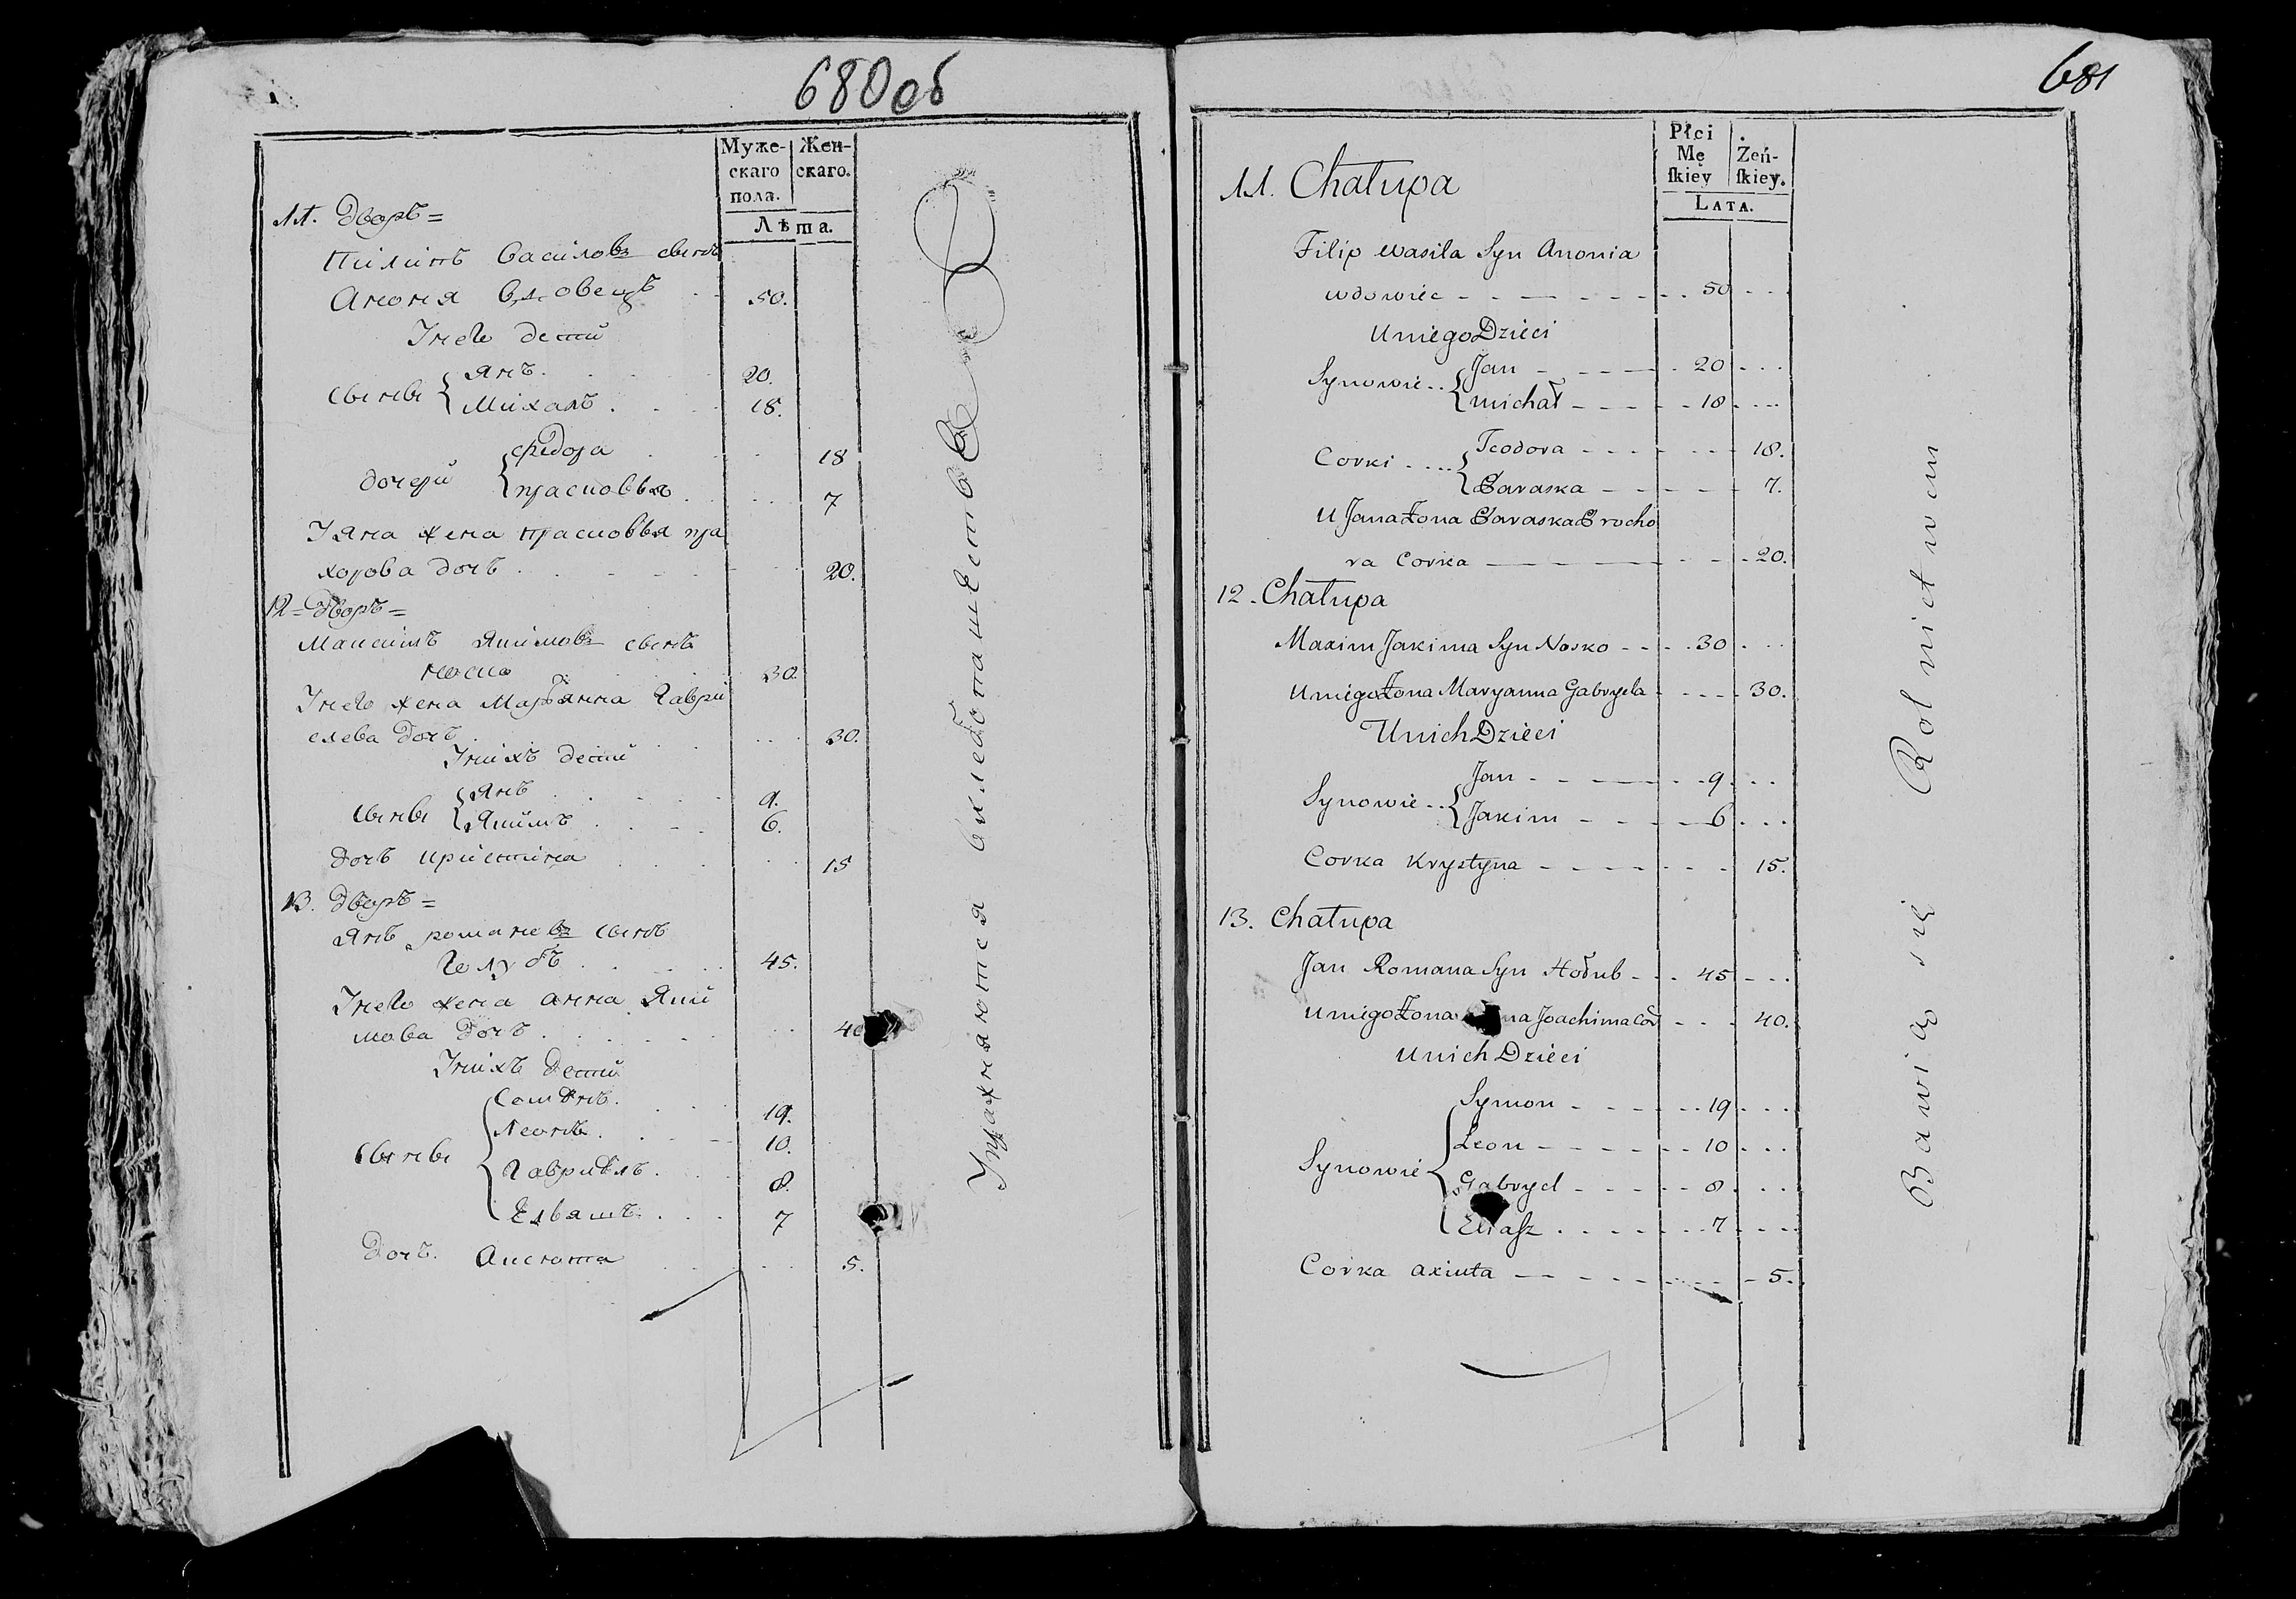 680 об
Муже-
скаго
пола.
Жен-
скаго.
Лѣта.
11. Дворъ =
Пилипъ Василовъ сынъ
Анонія вдовецъ 50.
У него дети
сыны { Янъ. 20.
Михалъ. 18.
дочери { Федора 18
прасковья. 7
У Яна жена прасковья про
хорова дочь. 20.
12 = Дворъ =
Максимъ Якимовъ сынъ
Носко 30.
У него жена Марьянна Гаври
елева дочь. 30.
У нихъ дети
сыны { Янъ 9.
Якимъ 6.
дочь Кристина 15
13. Дворъ =
Янъ романовъ сынъ
Голубъ 45.
У него жена анна Яки
мова дочь. 40
У нихъ дети
сыны {
19.
Леонъ. 10.
Гавриелъ. 8.
7
дочь. Аксюта 5.
Упражняются в хлебопашестве
681
Płci
Mę
ſkiey
Żeń-
ſkiey.
LATA.
11. Chałupa
Filip Wasila Syn Anonia
wdowiec 50
U niego Dzieci
Synowie { Jan 20
Michał 18
Corki { Teodora 18.
Paraska 7.
U Jana Żona Paraska Procho
ra Corka 20.
12. Chałupa
Maxim Jakima Syn Nosko 30
U niego Żona Maryanna Gabryela 30.
U nich Dzieci
Synowie { Jan 9
Jakim 6
Corka Krystyna 15.
13. Chałupa
Jan Romana Syn Hołub 45
U niego Żona na Joachima Cor 40.
U nich Dzieci
Synowie { Symon 19
Leon 10
Gabryel 8
Eliaſz 7
Corka axiuta 5.
Bawią się Rolnictwem